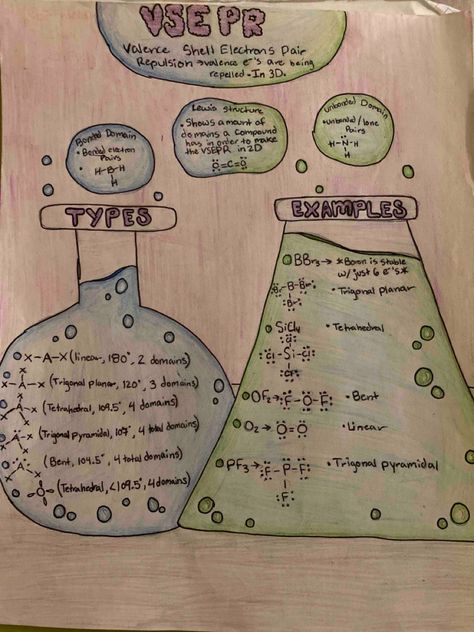 VSEPR
Valence Shell Electrons Pair
Repulsion → valence e⁻'s are being
repelled • In 3D.
Bonded Domain
• Bonded electron
Pairs
H-B-H
H
Lewis Structure
• Shows amount of
domains a compound
has in order to make
the VSEPR in 2D
O=C=O
Unbonded Domain
• unbonded/lone
Pairs
H-N-H
H
TYPES
X-A-X (linear, 180°, 2 domains)
X-A-X (Trigonal planar, 120°, 3 domains)
X-A-X (Tetrahedral, 109.5°, 4 domains)
X-A-X (Trigonal pyramidal, 107°, 4 total domains)
X A X (Bent, 104.5°, 4 total domains)
(Tetrahedral, <109.5°, 4 domains)
EXAMPLES
• BBr₃ → *Boron is stable
w/ just 6 e⁻'s*
Br-B-Br • Trigonal planar
Br
• SiCl₄ • Tetrahedral
Cl
Cl-Si-Cl
Cl
• OF₂ → F-O-F • Bent
• O₂ → O=O • Linear
• PF₃ → F-P-F • Trigonal pyramidal
F